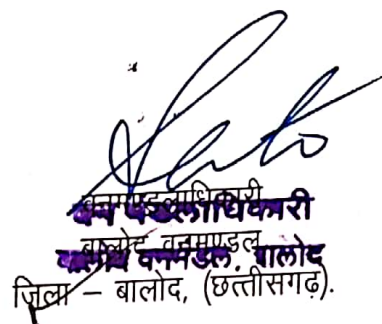 वनमण्डलाधिकारी
वन मण्डलाधिकारी
बालोद वनमण्डल
बालोद वनमंडल, बालोद
जिला – बालोद, (छत्तीसगढ़).